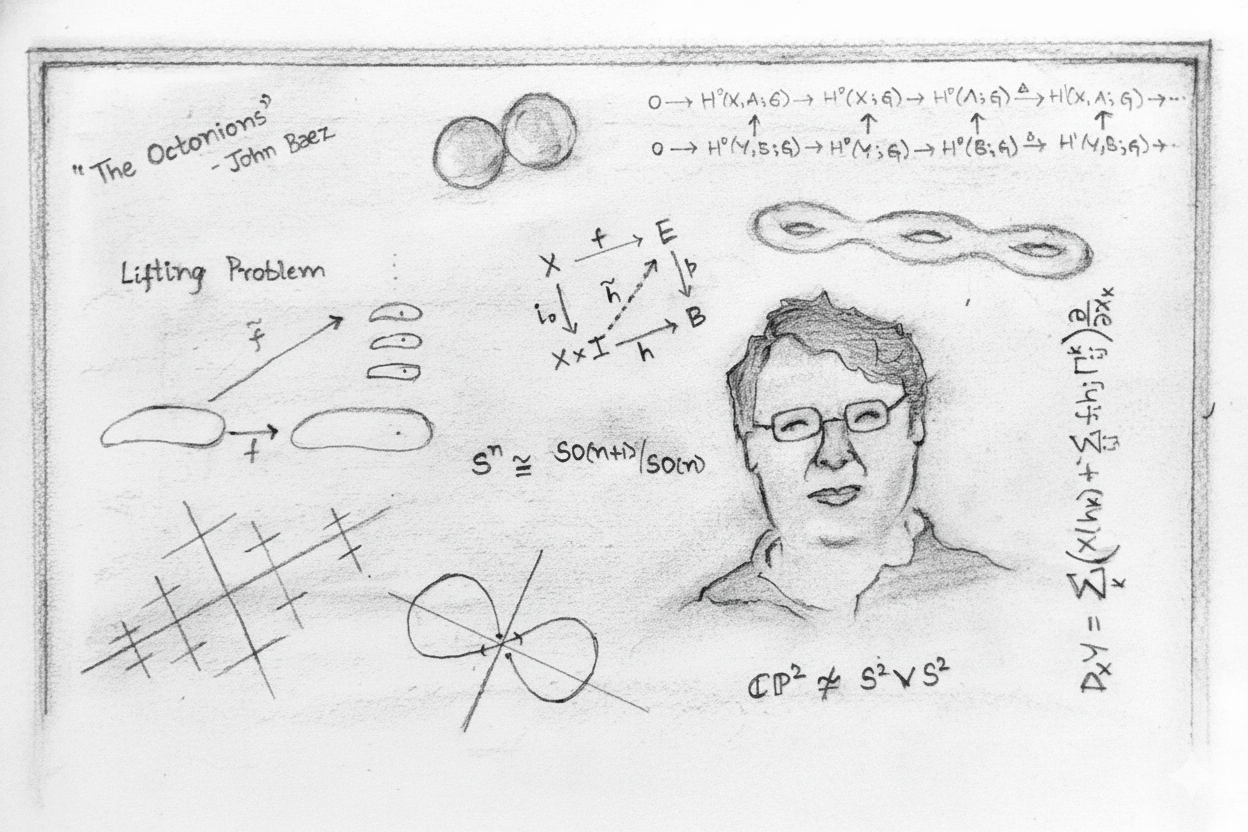 "The Octonions"
- John Baez
0 → H⁰(X,A;G) → H⁰(X;G) → H⁰(A;G) →Δ H¹(X,A;G) → ...
↑ ↑ ↑ ↑
0 → H⁰(Y,B;G) → H⁰(Y;G) → H⁰(B;G) →Δ H¹(Y,B;G) → ...
Lifting Problem
f̃
f
X f E
i₀ h̃ p
X×I h B
Sⁿ ≅ SO(n+1)/SO(n)
ℂP² ≄ S² ∨ S²
D_X Y = Σ_k (X(h_k) + Σ_ij f_i h_j Γ_ij^k) ∂/∂x_k